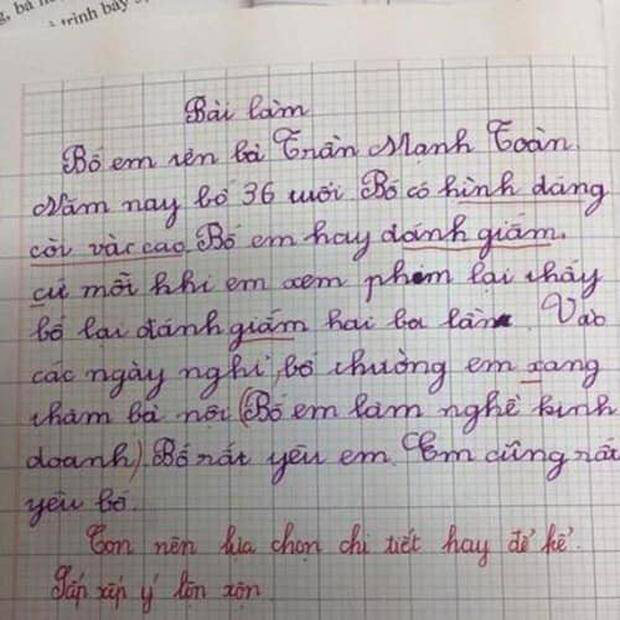 g, bả n
trình bày
Bài làm
Bố em tên là Trần Mạnh Toàn.
Năm nay bố 36 tuổi Bố có hình dáng
còi và cao. Bố em hay dánh giấm.
cứ mỗi khi em xem phim lại thấy
bố lại đánh giấm hai ba lần. Vào
các ngày nghỉ, bố thường em xang
thăm bà nội (Bố em làm nghề kinh
doanh) Bố rất yêu em. Em cũng rất
yêu bố.
Con nên lựa chọn chi tiết hay để kể.
Sắp xếp ý lộn xộn